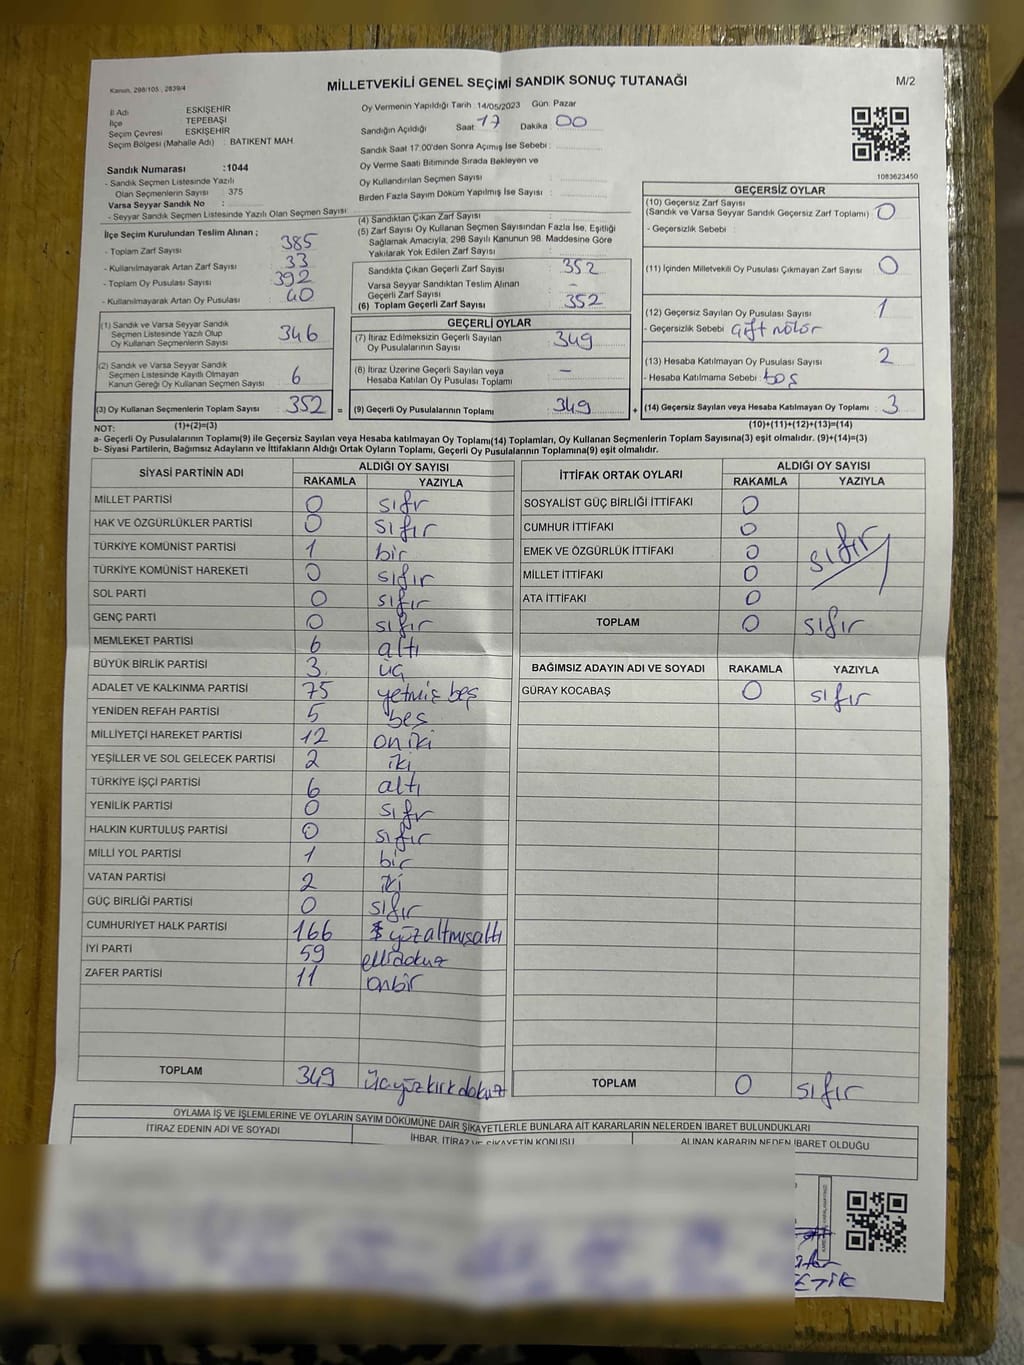 Kanun, 298/105 , 2839/4
MİLLETVEKİLİ GENEL SEÇİMİ SANDIK SONUÇ TUTANAĞI
M/2
İl Adı ESKİŞEHİR
İlçe TEPEBAŞI
Seçim Çevresi ESKİŞEHİR
Seçim Bölgesi (Mahalle Adı) : BATIKENT MAH
Oy Vermenin Yapıldığı Tarih : 14/05/2023 Gün: Pazar
Sandığın Açıldığı Saat : 17 Dakika : 00
Sandık Saat 17:00'den Sonra Açımış İse Sebebi :
Oy Verme Saati Bitiminde Sırada Bekleyen ve
Oy Kullandırılan Seçmen Sayısı :
Birden Fazla Sayım Döküm Yapılmış İse Sayısı :
1083623450
Sandık Numarası :1044
- Sandık Seçmen Listesinde Yazılı
Olan Seçmenlerin Sayısı : 375
Varsa Seyyar Sandık No :
- Seyyar Sandık Seçmen Listesinde Yazılı Olan Seçmen Sayısı:
İlçe Seçim Kurulundan Teslim Alınan ;
- Toplam Zarf Sayısı : 385
- Kullanılmayarak Artan Zarf Sayısı : 33
- Toplam Oy Pusulası Sayısı : 392
- Kullanılmayarak Artan Oy Pusulası : 40
(1) Sandık ve Varsa Seyyar Sandık
Seçmen Listesinde Yazılı Olup
Oy Kullanan Seçmenlerin Sayısı : 346
(2) Sandık ve Varsa Seyyar Sandık
Seçmen Listesinde Kayıtlı Olmayan
Kanun Gereği Oy Kullanan Seçmen Sayısı : 6
(3) Oy Kullanan Seçmenlerin Toplam Sayısı : 352 =
(4) Sandıktan Çıkan Zarf Sayısı :
(5) Zarf Sayısı Oy Kullanan Seçmen Sayısından Fazla İse, Eşitliği
Sağlamak Amacıyla, 298 Sayılı Kanunun 98. Maddesine Göre
Yakılarak Yok Edilen Zarf Sayısı :
Sandıkta Çıkan Geçerli Zarf Sayısı : 352
Varsa Seyyar Sandıktan Teslim Alınan
Geçerli Zarf Sayısı : -
(6) Toplam Geçerli Zarf Sayısı : 352
GEÇERLİ OYLAR
(7) İtiraz Edilmeksizin Geçerli Sayılan
Oy Pusulalarının Sayısı : 349
(8) İtiraz Üzerine Geçerli Sayılan veya
Hesaba Katılan Oy Pusulası Toplamı : -
(9) Geçerli Oy Pusulalarının Toplamı : 349 +
GEÇERSİZ OYLAR
(10) Geçersiz Zarf Sayısı
(Sandık ve Varsa Seyyar Sandık Geçersiz Zarf Toplamı) : 0
- Geçersizlik Sebebi :
(11) İçinden Milletvekili Oy Pusulası Çıkmayan Zarf Sayısı : 0
(12) Geçersiz Sayılan Oy Pusulası Sayısı : 1
- Geçersizlik Sebebi :
(13) Hesaba Katılmayan Oy Pusulası Sayısı : 2
- Hesaba Katılmama Sebebi : boş
(14) Geçersiz Sayılan veya Hesaba Katılmayan Oy Toplamı : 3
NOT: (1)+(2)=(3) (10)+(11)+(12)+(13)=(14)
a- Geçerli Oy Pusulalarının Toplamı(9) ile Geçersiz Sayılan veya Hesaba katılmayan Oy Toplamı(14) Toplamları, Oy Kullanan Seçmenlerin Toplam Sayısına(3) eşit olmalıdır. (9)+(14)=(3)
b- Siyasi Partilerin, Bağımsız Adayların ve İttifakların Aldığı Ortak Oyların Toplamı, Geçerli Oy Pusulalarının Toplamına(9) eşit olmalıdır.
SİYASİ PARTİNİN ADI ALDIĞI OY SAYISI
RAKAMLA YAZIYLA
MİLLET PARTİSİ 0 sıfır
HAK VE ÖZGÜRLÜKLER PARTİSİ 0 sıfır
TÜRKİYE KOMÜNİST PARTİSİ 1 bir
TÜRKİYE KOMÜNİST HAREKETİ 0 sıfır
SOL PARTİ 0 sıfır
GENÇ PARTİ 0 sıfır
MEMLEKET PARTİSİ 6 altı
BÜYÜK BİRLİK PARTİSİ 3. üç
ADALET VE KALKINMA PARTİSİ 75 yetmiş beş
YENİDEN REFAH PARTİSİ 5 beş
MİLLİYETÇİ HAREKET PARTİSİ 12 on iki
YEŞİLLER VE SOL GELECEK PARTİSİ 2 iki
TÜRKİYE İŞÇİ PARTİSİ 6 altı
YENİLİK PARTİSİ 0 sıfır
HALKIN KURTULUŞ PARTİSİ 0 sıfır
MİLLİ YOL PARTİSİ 1 bir
VATAN PARTİSİ 2 iki
GÜÇ BİRLİĞİ PARTİSİ 0 sıfır
CUMHURİYET HALK PARTİSİ 166 yüzaltmışaltı
İYİ PARTİ 59 ellidokuz
ZAFER PARTİSİ 11 onbir
TOPLAM 349 üçyüzkırkdokuz
İTTİFAK ORTAK OYLARI ALDIĞI OY SAYISI
RAKAMLA YAZIYLA
SOSYALİST GÜÇ BİRLİĞİ İTTİFAKI 0
CUMHUR İTTİFAKI 0
EMEK VE ÖZGÜRLÜK İTTİFAKI 0 sıfır
MİLLET İTTİFAKI 0
ATA İTTİFAKI 0
TOPLAM 0 sıfır
BAĞIMSIZ ADAYIN ADI VE SOYADI RAKAMLA YAZIYLA
GÜRAY KOCABAŞ 0 sıfır
TOPLAM 0 sıfır
OYLAMA İŞ VE İŞLEMLERİNE VE OYLARIN SAYIM DÖKÜMÜNE DAİR ŞİKAYETLERLE BUNLARA AİT KARARLARIN NELERDEN İBARET BULUNDUKLARI
İTİRAZ EDENİN ADI VE SOYADI
İHBAR, İTİRAZ VE ŞİKAYETİN KONUSU
ALINAN KARARIN NEDEN İBARET OLDUĞU